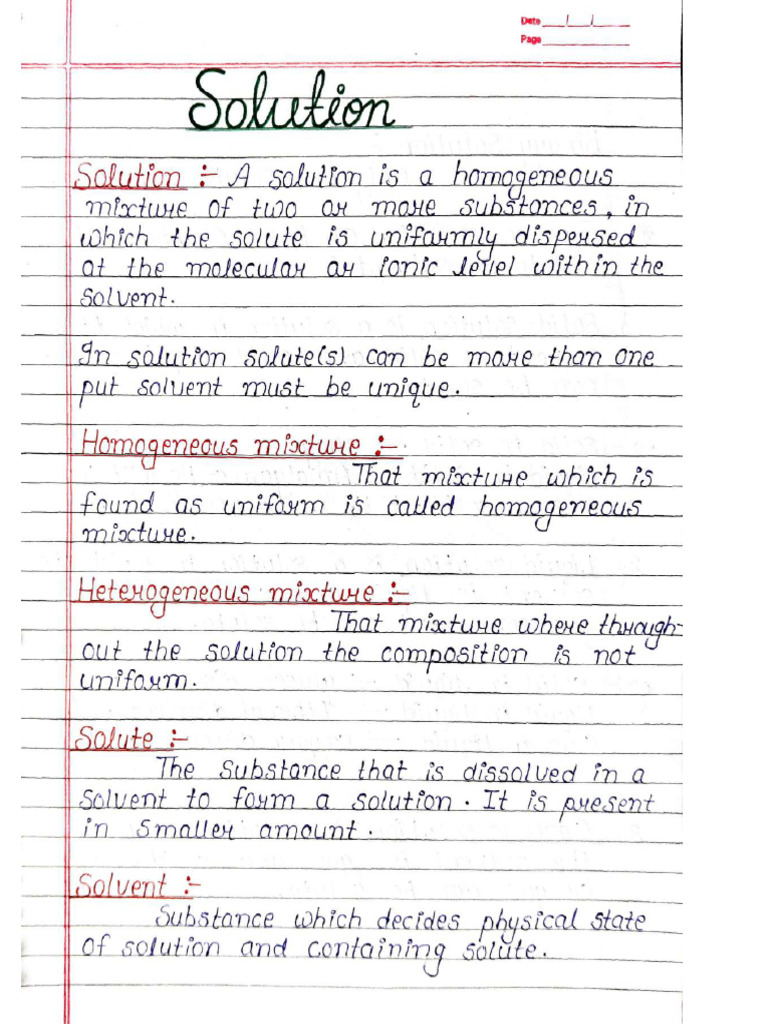 Date __/__/__
Page ________
Solution
Solution :- A solution is a homogeneous
mixture of two or more substances, in
which the solute is uniformly dispersed
at the molecular or ionic level within the
solvent.
In solution solute(s) can be more than one
put solvent must be unique.
Homogeneous mixture :-
That mixture which is
found as uniform is called homogeneous
mixture.
Heterogeneous mixture :-
That mixture where through-
out the solution the composition is not
uniform.
Solute :-
The substance that is dissolved in a
solvent to form a solution. It is present
in smaller amount.
Solvent :-
Substance which decides physical state
of solution and containing solute.